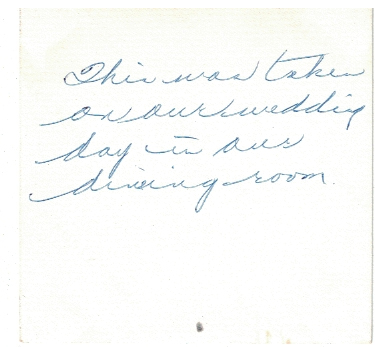 This was taken
on our wedding
day in our
dining room.